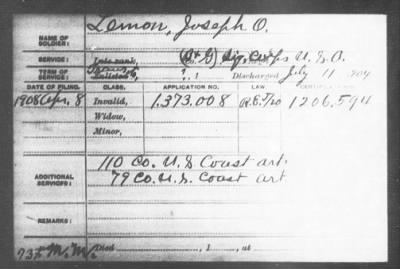 NAME OF SOLDIER: Lemon, Joseph O.
SERVICE: Late rank, Sig. Corps U.S.A.
TERM OF SERVICE: Enlisted ?, 1 Discharged July 11 1904
DATE OF FILING. CLASS. APPLICATION NO. LAW.
1908 Apr. 8 Invalid, 1.373.008 1206.594
Widow,
Minor,
110 Co. U.S Coast art.
ADDITIONAL SERVICES: 79 Co. U.S. Coast art
REMARKS:
Died , 1 , at